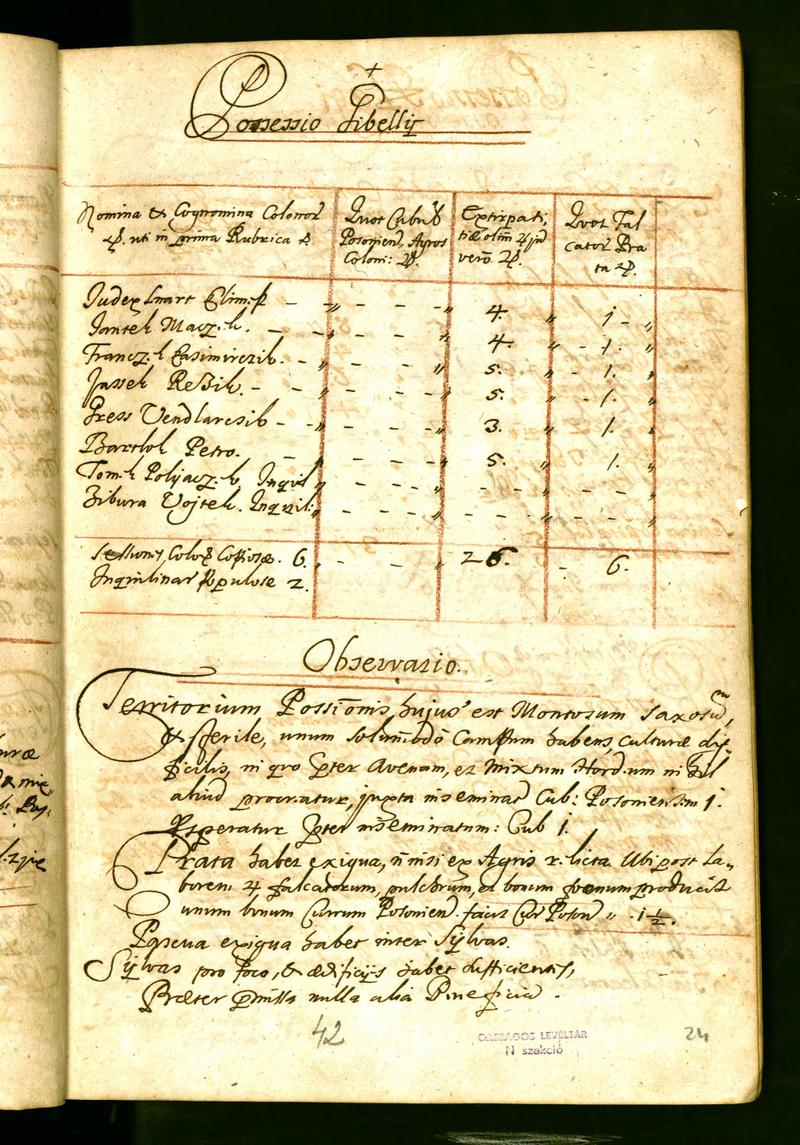 Possessio Gibellis
Nomina & Cognomina Colonor
uti in prima Rubrica
Quot Cubul
Posonien. Agros
Coloni:
Extirpati,
tiæ olim
vero
Quot Fal
cator Pra
ta
Judex Lnart Climek - " - - " 4. " 1 - "
Jantek Maczek. - - " - - " 4. " - 1. "
Franczek Casimirczik. - - " - - " 5. " - 1. "
Jassek Rezik. - - " - - " 5. " - 1. "
Gress Vendlarcsik - - " - - " 3. " 1. "
Bartlok Petro. - " - - " 5. " 1. "
Tomek Polyaczek Inquil " - - " - - " - - "
Zibura Vojtek. Inquil: " - - " - - " - - "
Sessiones Colon Copiosæ. 6. - - " 26. - 6.
Inquilinar Populose 2.
Observatio.
Territorium Possionis hujus est Montosum Saxosum,
& sterile, unum solummodo Campum habens, culturæ dif-
ficilis, in quo præter Avenam, et Mixtum Hordeum nihil
aliud procreatur, juxta inseminat Cub: Posoniensem 1.
Speratur præter inseminatum: Cub 1.
Prata habet exigua, nisi ex Agris relicta Ubi post la-
borem 4 falcatorum, pulchrum, et bonum foenum producit
unum bonum Currum Posonien. facit Cur Poson " 1 1/2.
Pascua exigua habet inter Sylvas.
Sylvas pro foco, & ædificiis habet sufficientes,
Præter præmissa nulla alia Beneficia.
42
ORSZÁGOS LEVÉLTÁR
N szekció
24